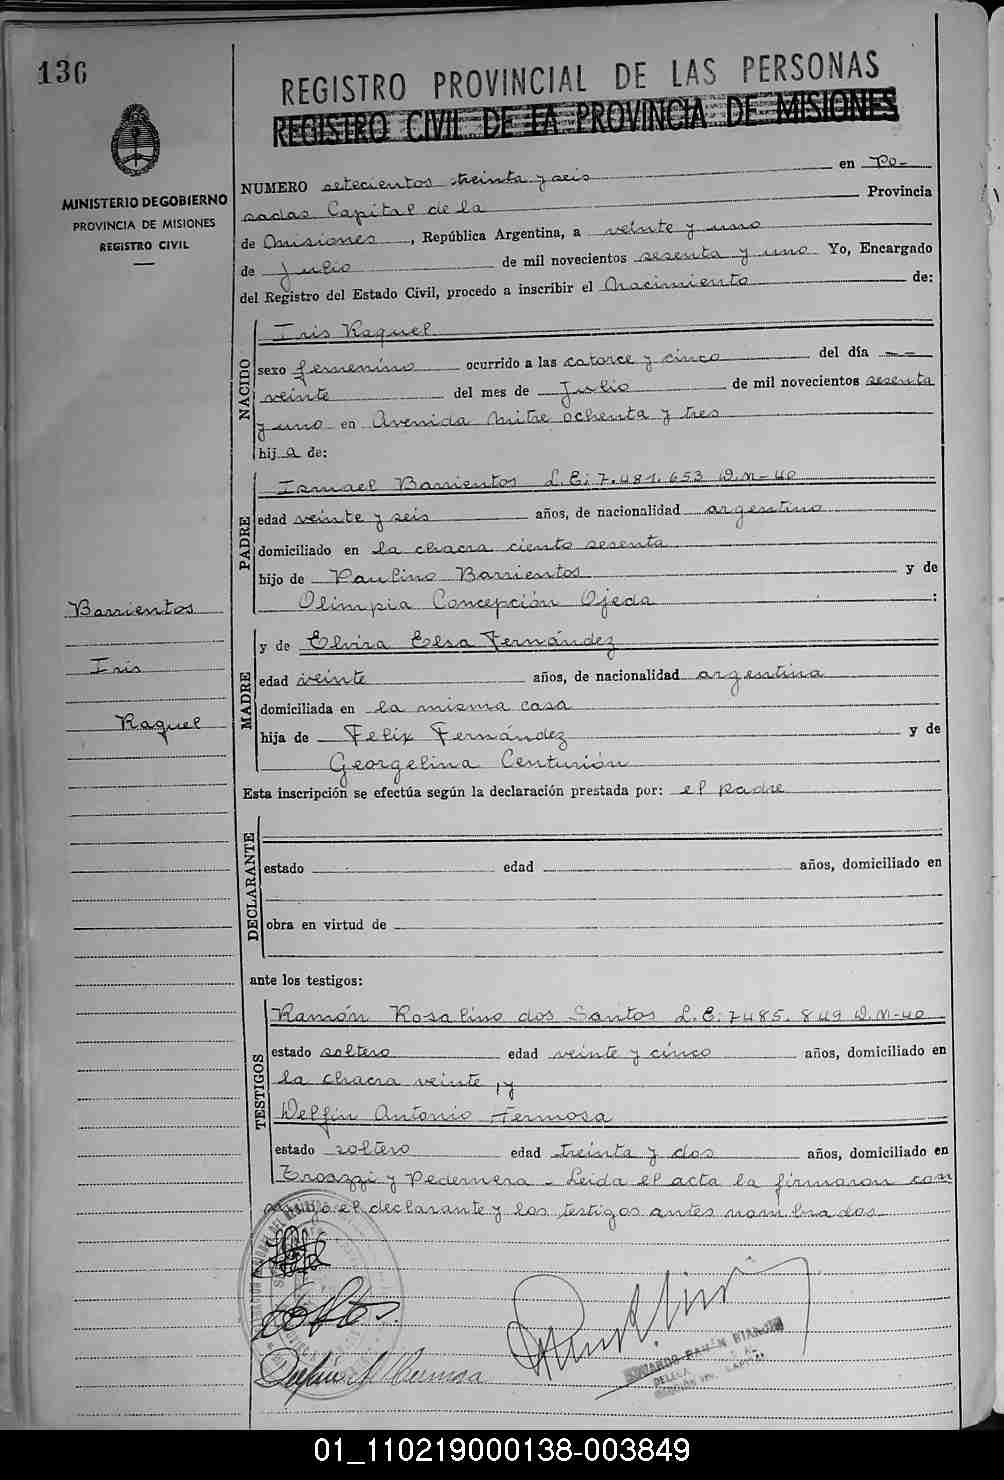 136
REGISTRO PROVINCIAL DE LAS PERSONAS
REGISTRO CIVIL DE LA PROVINCIA DE MISIONES
MINISTERIO DE GOBIERNO
PROVINCIA DE MISIONES
REGISTRO CIVIL
NUMERO setecientos treinta y seis en Po-
sadas Capital de la Provincia
de Misiones, República Argentina, a veinte y uno
de Julio de mil novecientos sesenta y uno Yo, Encargado
del Registro del Estado Civil, procedo a inscribir el Nacimiento de:
NACIDO
Iris Raquel
sexo femenino ocurrido a las catorce y cinco del día --
veinte del mes de Julio de mil novecientos sesenta
y uno en Avenida Mitre ochenta y tres
hija de:
PADRE
Ismael Barrientos L.E: 7.481.653 D.M-40
edad veinte y seis años, de nacionalidad argentino
domiciliado en la chacra ciento sesenta
hijo de Paulino Barrientos y de
Olimpia Concepción Ojeda :
Barrientos
Iris
Raquel
MADRE
y de Elvira Elsa Fernández
edad veinte años, de nacionalidad argentina
domiciliada en la misma casa
hija de Felix Fernández y de
Georgelina Centurión
Esta inscripción se efectúa según la declaración prestada por: el padre
DECLARANTE
estado edad años, domiciliado en
obra en virtud de
ante los testigos:
TESTIGOS
Ramón Rosalino dos Santos L.E: 7485.849 D.M-40
estado soltero edad veinte y cinco años, domiciliado en
la chacra veinte, y
Delfin Antonio Hermosa
estado soltero edad treinta y dos años, domiciliado en
y Pedernera - Leida el acta la firmaron con
el declarante y los testigos antes nombrados-
RAMÓN
01_110219000138-003849